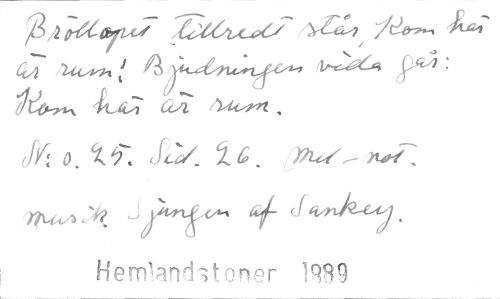 Bröllopet tillredt står, Kom här
är rum! Bjudningen vida går:
Kom här är rum.
N:o. 25. Sid. 26. Mel-not.
musik. Sjungen af Sankey.
Hemlandstoner 1889